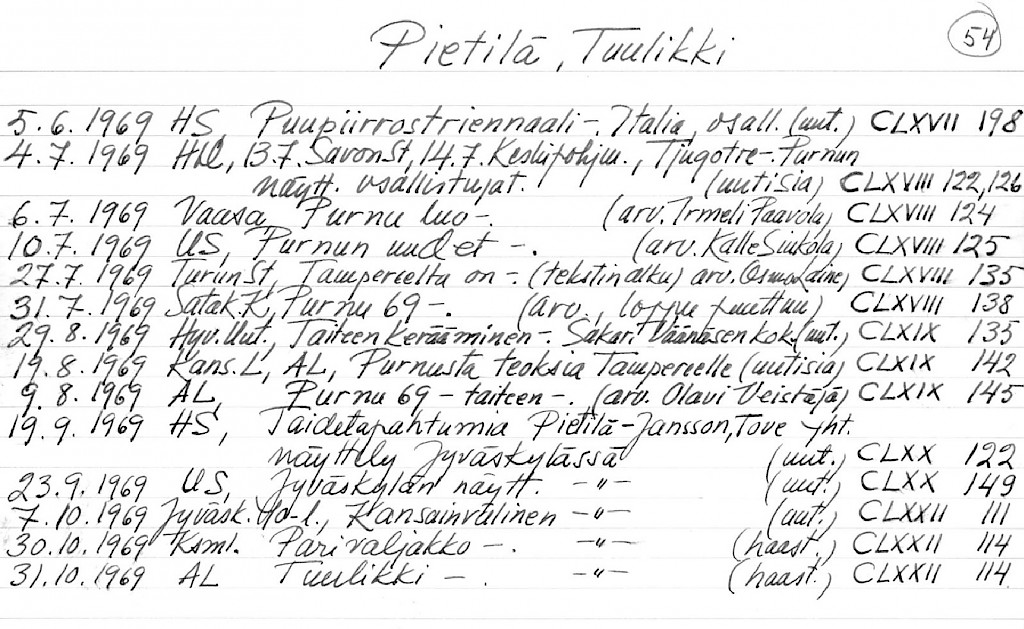 54
Pietilä, Tuulikki
5.6.1969 HS, Puupiirrostriennaali-. Italia, osall. (uut.) CLXVII 198
4.7.1969 , 13.7. SavonSt, 14.7. Keskipohjm., -. Purnun
näytt. osallistujat. (uutisia) CLXVIII 122,126
6.7.1969 Vaasa, Purnu luo-. (arv. Irmeli Paavola) CLXVIII 124
10.7.1969 US, Purnun uudet -. (arv. Kalle ) CLXVIII 125
27.7.1969 TurunSt, Tampereelta on -. (tekstin alku) arv. Osmo Laine) CLXVIII 135
31.7.1969 Satak.K, Purnu 69 -. (arv., loppu puuttuu) CLXVIII 138
29.8.1969 Hyv.Uut., Taiteen kerääminen-. Sakari Väänäsen kok. (uut.) CLXIX 135
19.8.1969 Kans.L, AL, Purnusta teoksia Tampereelle (uutisia) CLXIX 142
9.8.1969 AL, Purnu 69 - taiteen -. (arv. Olavi Veistäjä) CLXIX 145
19.9.1969 HS, Taidetapahtumia Pietilä-Jansson, Tove yht.
näyttely Jyväskylässä (uut.) CLXX 122
23.9.1969 US, Jyväskylän näytt. -"- (uut.) CLXX 149
7.10.1969 Jyväsk. , Kansainvälinen -"- (uut.) CLXXII 111
30.10.1969 Ksml. Parivaljakko -. -"- (haast.) CLXXII 114
31.10.1969 AL Tuulikki -. -"- (haast.) CLXXII 114